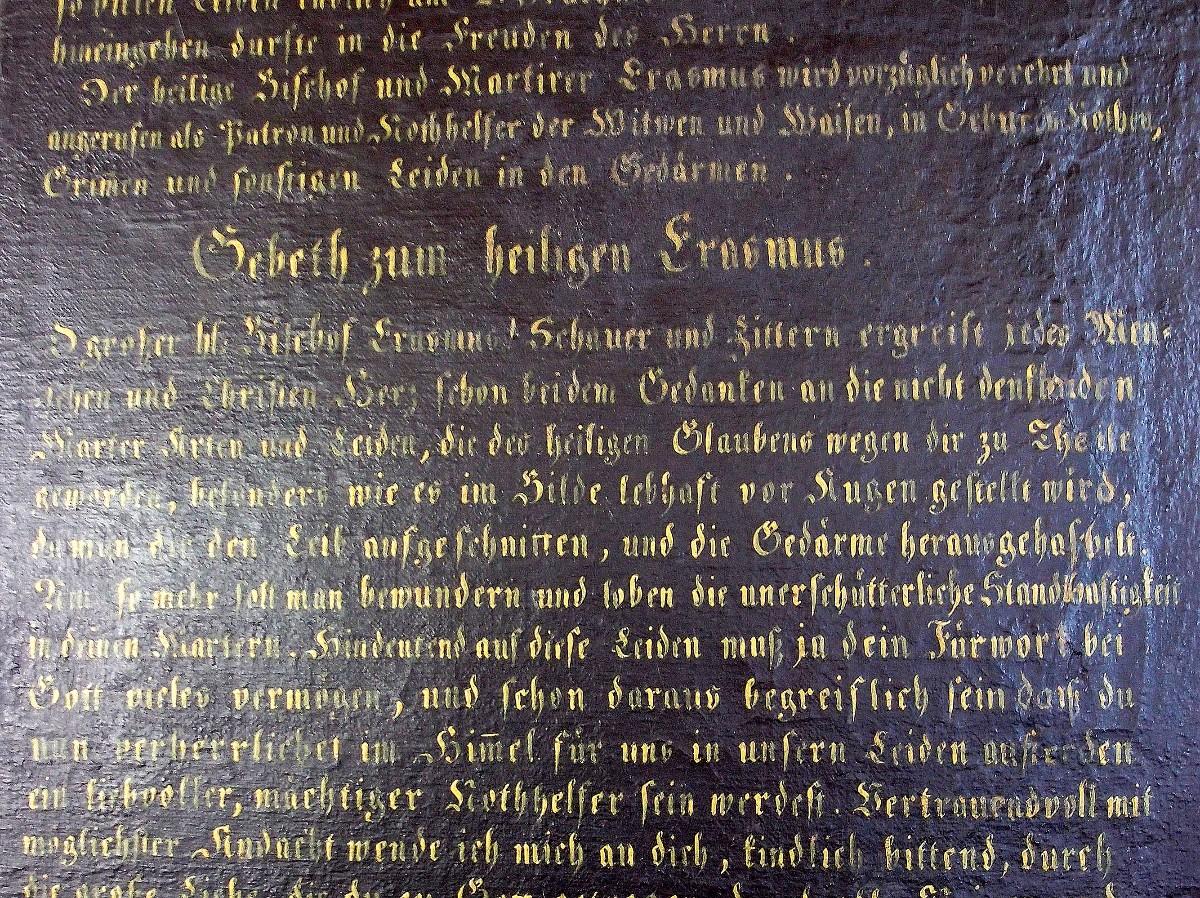 hineingehen durfte in die Freuden des Herrn .
Der heilige Bischof und Martirer Erasmus wird vorzüglich verehrt und
angerufen als Patron und Nothhelfer der Witwen und Waisen, in
Grim̄en und sonstigen Leiden in den Gedärmen .
Gebeth zum heiligen Erasmus .
O großer hl: Bischof Erasmus! Schauer und Zittern ergreift jedes Men-
schen und Christen Herz schon bei dem Gedanken an die nicht denkbaren
Marter Arten und Leiden, die des heiligen Glaubens wegen dir zu Theile
geworden, besonders wie es im Bilde lebhaft vor Augen gestellt wird,
da man dir den Leib aufgeschnitten, und die Gedärme herausgehaspelt.
Um so mehr soll man bewundern und loben die unerschütterliche Standhaftigkeit
in deinen Martern. Hindeutend auf diese Leiden muß ja dein Fürwort bei
Gott vieles vermögen, und schon daraus begreiflich sein daß du
nun verherrlichet im Him̄el für uns in unsern Leiden auf Erden
ein liebvoller, mächtiger Nothhelfer sein werdest. Vertrauensvoll mit
möglichster Andacht wende ich mich an dich, kindlich bittend, durch
die große Liebe, die du zu